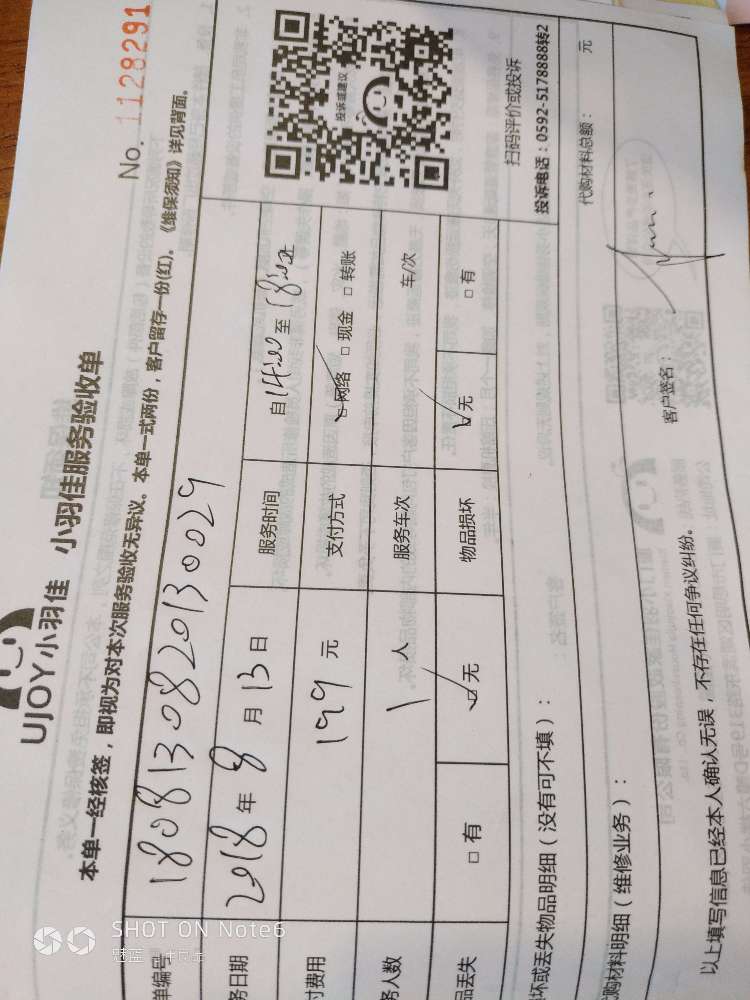 UJOY小羽佳 小羽佳服务验收单
No. 1128291
本单一经核签，即视为对本次服务验收无异议。本单一式两份，客户留存一份(红)。《维保须知》详见背面。
单编号 1808130820130029
务日期 2018年8月13日 服务时间 自14:00至18:00
付费用 199元 支付方式 ☑网络 □现金 □转账
务人数 1人 服务车次 车/次
品丢失 □有 ☑无 物品损坏 ☑无 □有
投诉或建议
扫码评价或投诉
投诉电话：0592-5178888转2
坏或丢失物品明细（没有可不填）：
购材料明细（维修业务）： 代购材料总额： 元
以上填写信息已经本人确认无误，不存在任何争议纠纷。 客户签名：
SHOT ON Note6